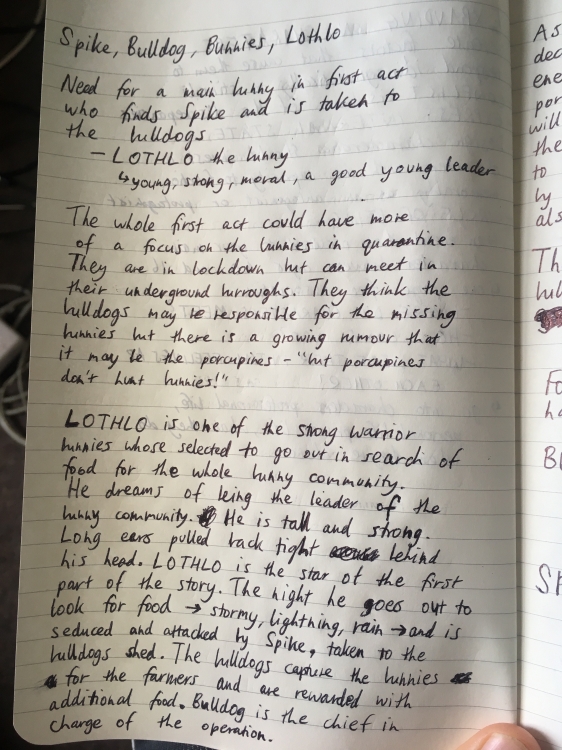 Spike, Bulldog, Bunnies, Lothlo
Need for a main bunny in first act
who finds Spike and is taken to
the bulldogs
- LOTHLO the bunny
↳ young, strong, moral, a good young leader
The whole first act could have more
of a focus on the bunnies in quarantine.
They are in lockdown but can meet in
their underground burroughs. They think the
bulldogs may be responsible for the missing
bunnies but there is a growing rumour that
it may be the porcupines - "but porcupines
don't hunt bunnies!"
LOTHLO is one of the strong warrior
bunnies whose selected to go out in search of
food for the whole bunny community.
He dreams of being the leader of the
bunny community. He is tall and strong.
Long ears pulled back tight behind
his head. LOTHLO is the star of the first
part of the story. The night he goes out to
look for food → stormy, lightning, rain → and is
seduced and attacked by Spike, taken to the
bulldogs shed. The bulldogs capture the bunnies
for the farmers and are rewarded with
additional food. Bulldog is the chief in
charge of the operation.
As
dec
ene
por
will
the
to
by
als
Th
bul
Fo
ha
Bu